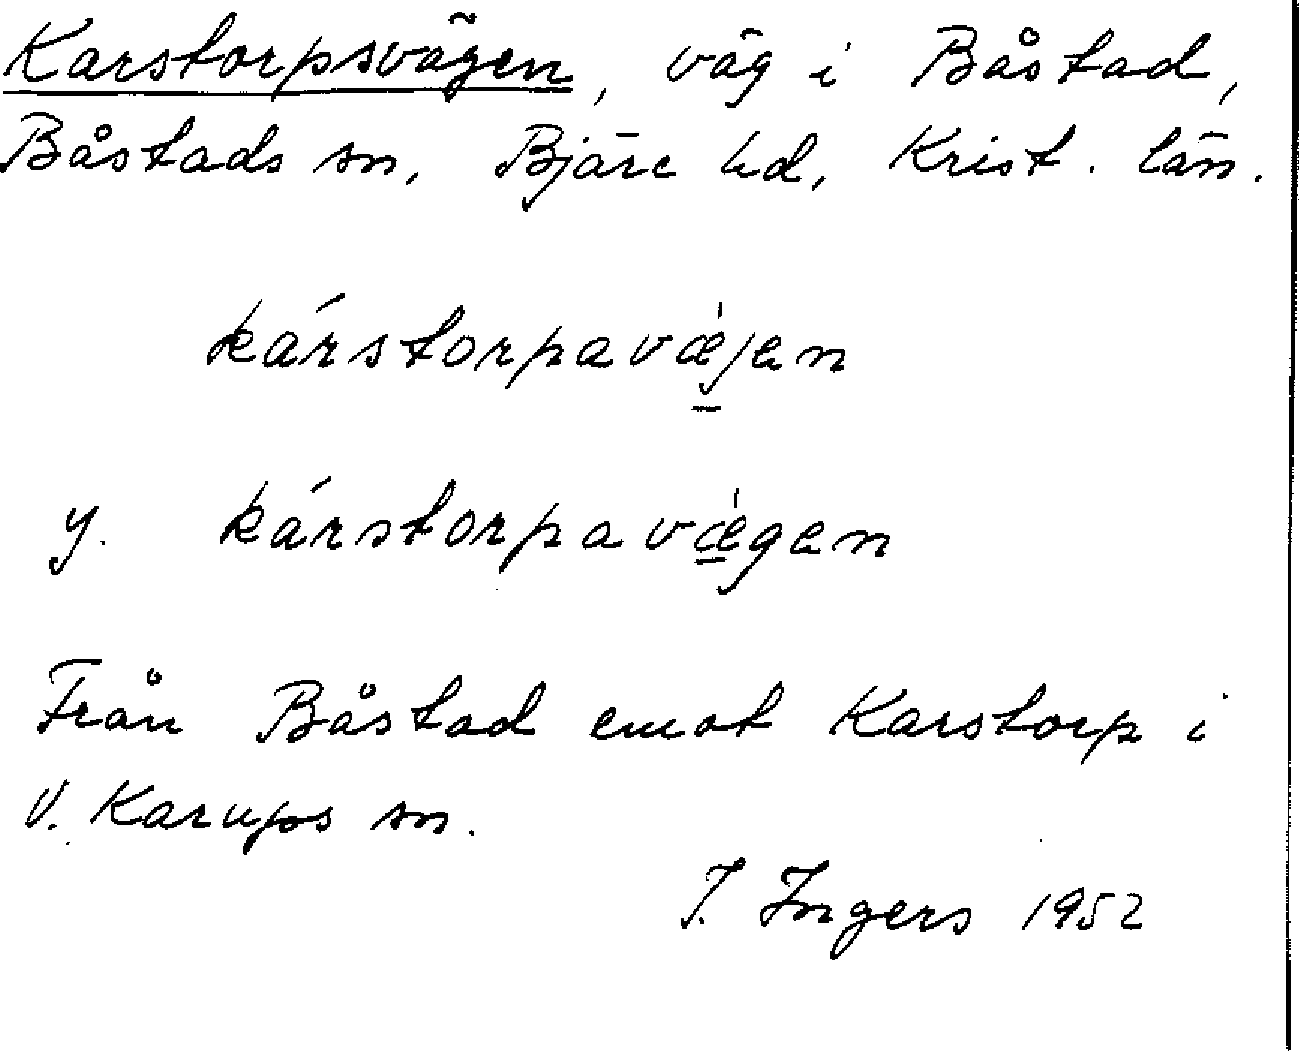 Karstorpsvägen, väg i Båstad,
Båstads sn, Bjäre hd, Krist. län.
kárstorpavæ̀jen
y. kárstorpavæ̀gen
Från Båstad emot Karstorp i
V. Karups sn.
I. Ingers 1952